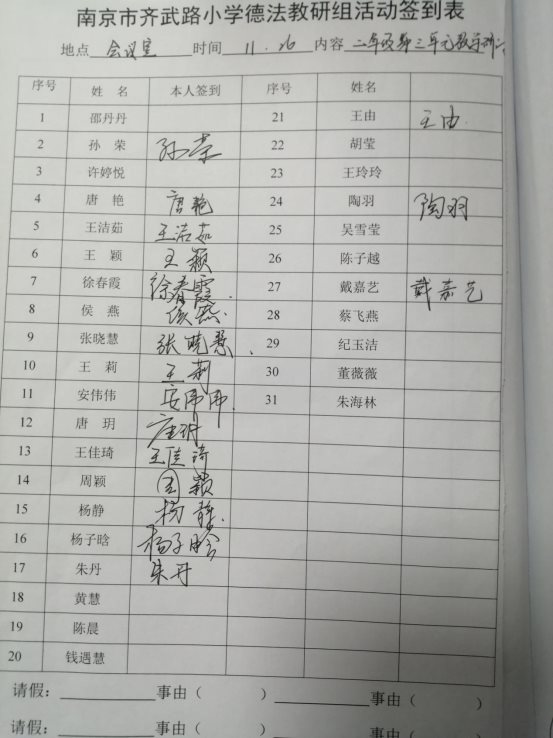 南京市齐武路小学德法教研组活动签到表
地点 会议室 时间 11.26 内容 二年级第三单元教学研
序号 姓名 本人签到 序号 姓名
1 邵丹丹 21 王由 王由
2 孙荣 孙荣 22 胡莹
3 许婷悦 23 王玲玲
4 唐艳 唐艳 24 陶羽 陶羽
5 王洁茹 王洁茹 25 吴雪莹
6 王颖 王颖 26 陈子越
7 徐春霞 徐春霞 27 戴嘉艺 戴嘉艺
8 侯燕 侯燕 28 蔡飞燕
9 张晓慧 张晓慧 29 纪玉洁
10 王莉 王莉 30 董薇薇
11 安伟伟 安伟伟 31 朱海林
12 唐玥 唐玥
13 王佳琦 王佳琦
14 周颖 周颖
15 杨静 杨静
16 杨子晗 杨子晗
17 朱丹 朱丹
18 黄慧
19 陈晨
20 钱遇慧
请假: 事由( ) 事由( )
请假: 事由( ) 事由( )